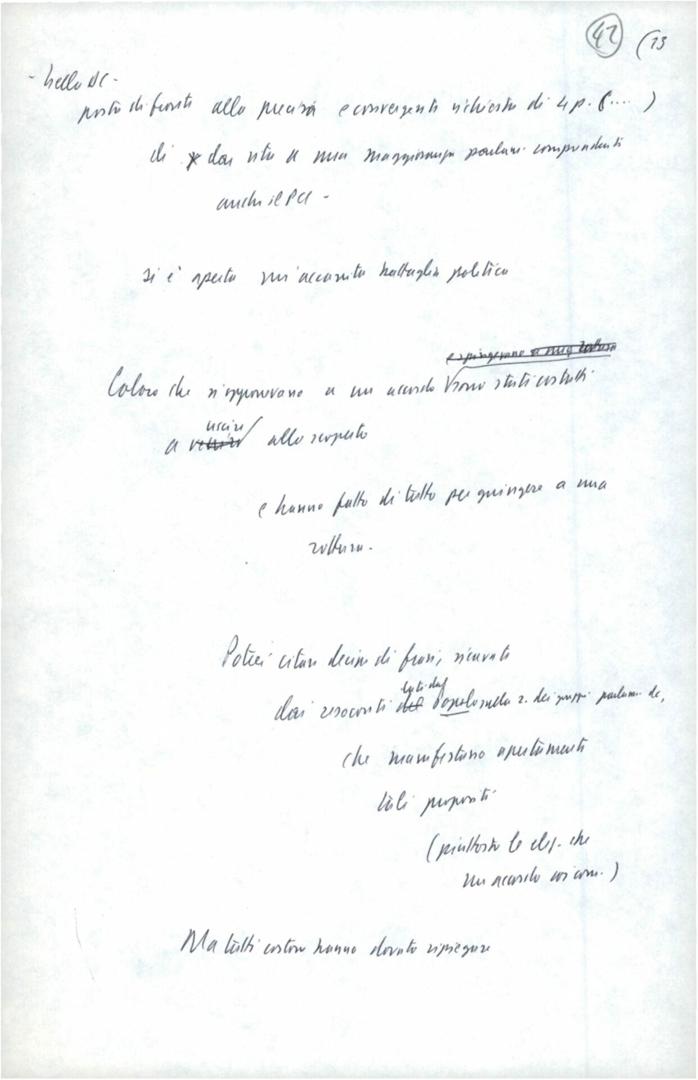 42 (13
- nella DC -
posta di fronte alla precisa e convergente richiesta di 4 p. (....)
di dar vita a una maggioranza parlam. comprendente
anche il PCI -
si è aperta un'accanita battaglia politica
e spingevano a una rottura
Coloro che si opponevano a un accordo sono stati costretti
uscire
a venire allo scoperto
e hanno fatto di tutto per spingere a una
rottura.
Potrei citare decine di frasi, ricavate
dati dal
dai resoconti del Popolo sulla r. dei gruppi parlam. dc,
che manifestano apertamente
tali propositi
(piuttosto le elez. che
un accordo coi com.)
Ma tutti costoro hanno dovuto ripiegare